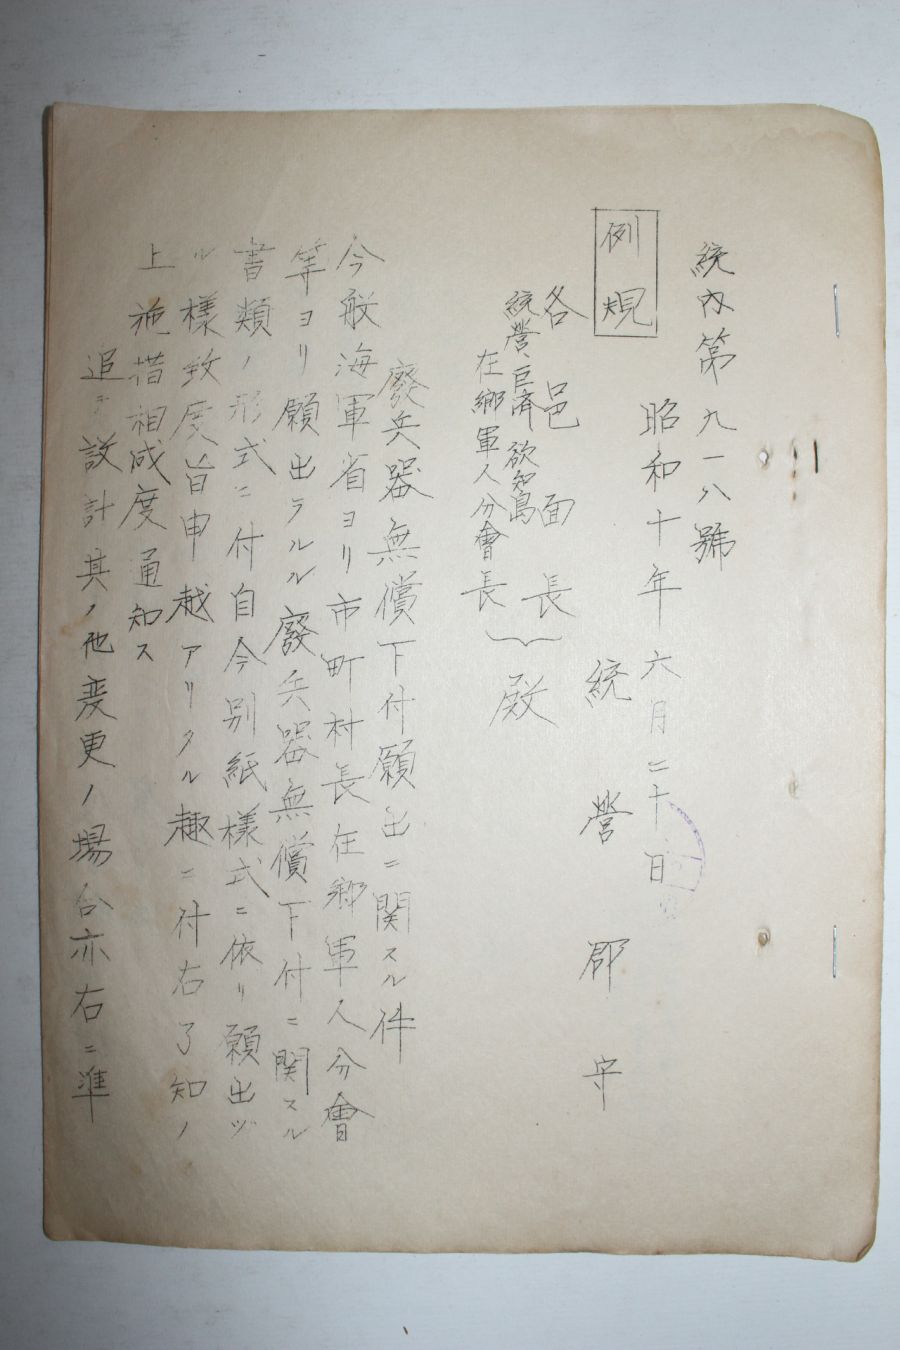 統内第九一八號
例規
昭和十年六月二十日
統營郡守
各邑面長
統營、巨済、欲知島
在郷軍人分會長
殿
廢兵器無償下付願出ニ関スル件
今般海軍省ヨリ市町村長在郷軍人分會
等ヨリ願出ラルル廢兵器無償下付ニ関スル
書類ノ形式ニ付自今別紙様式ニ依リ願出ヅ
ル様致度旨申越アリタル趣ニ付右了知ノ
上施措相成度通知ス
追テ設計其ノ他変更ノ場合亦右ニ準